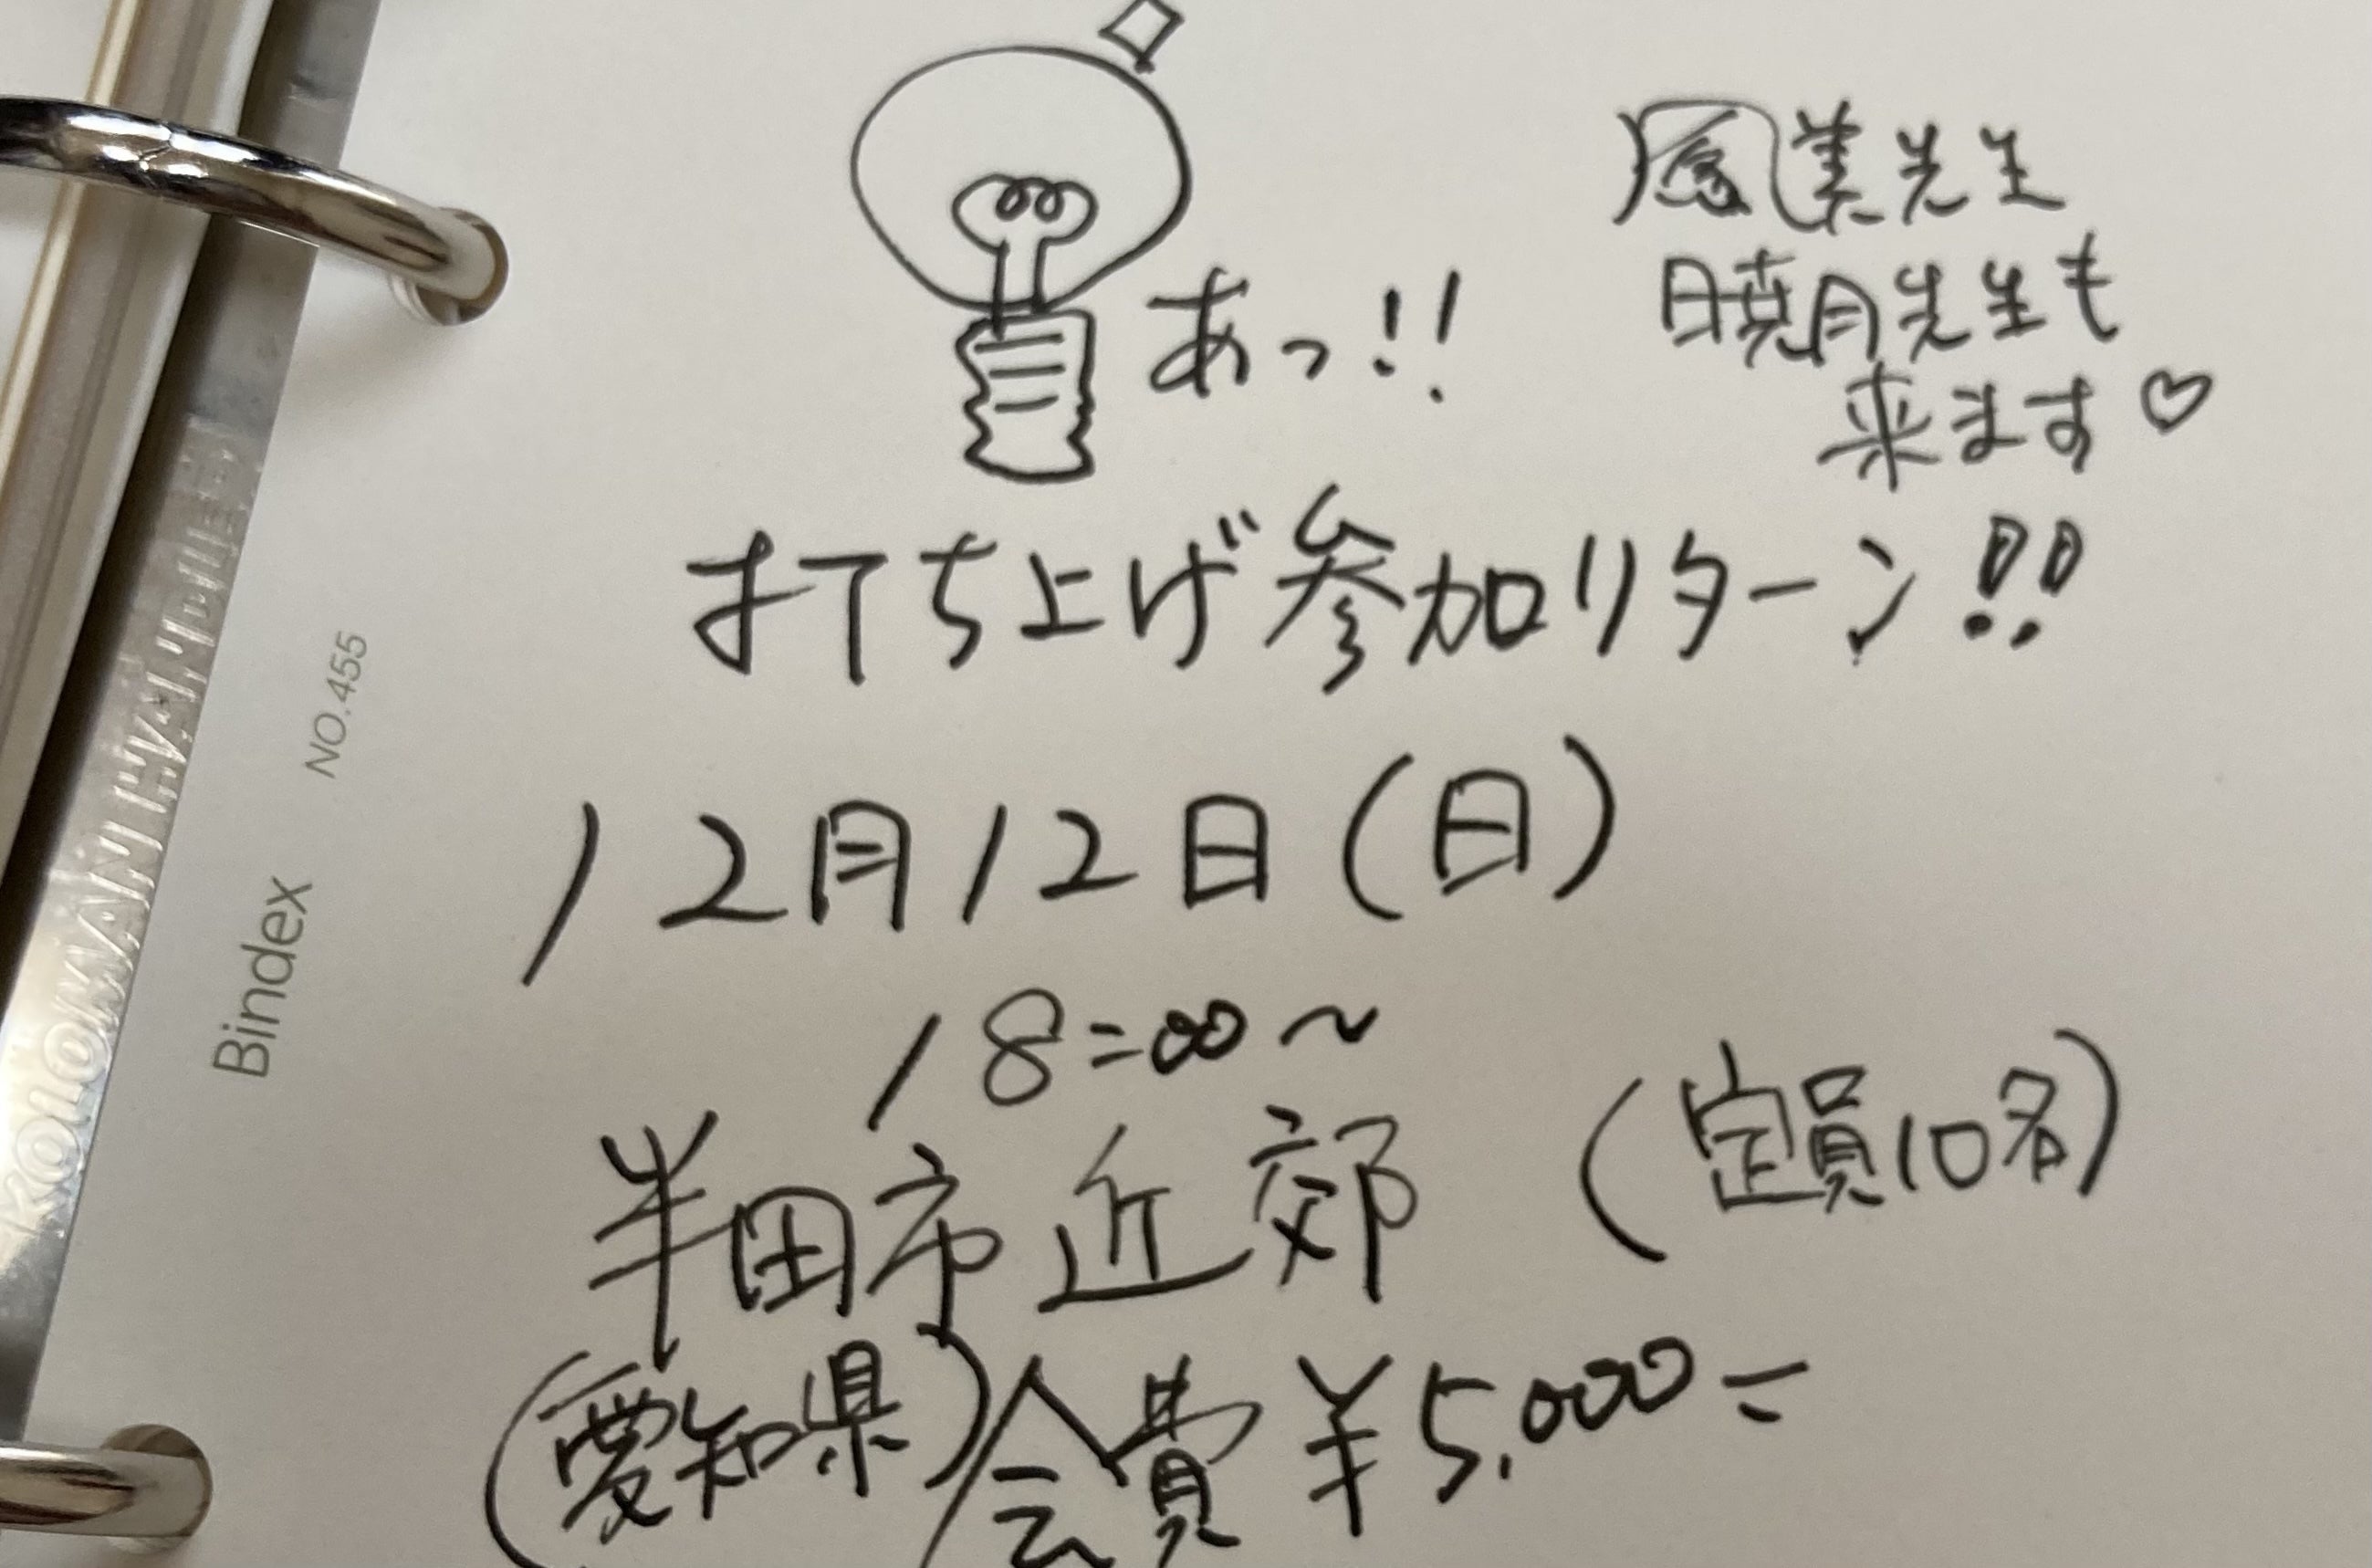 あっ!!
美先生
暁月先生も
来ます♡
打ち上げ参加リターン!!
12月12日(日)
18:00~
半田市近郊 (定員10名)
(愛知県) 会費¥5,000=
Bindex NO.455